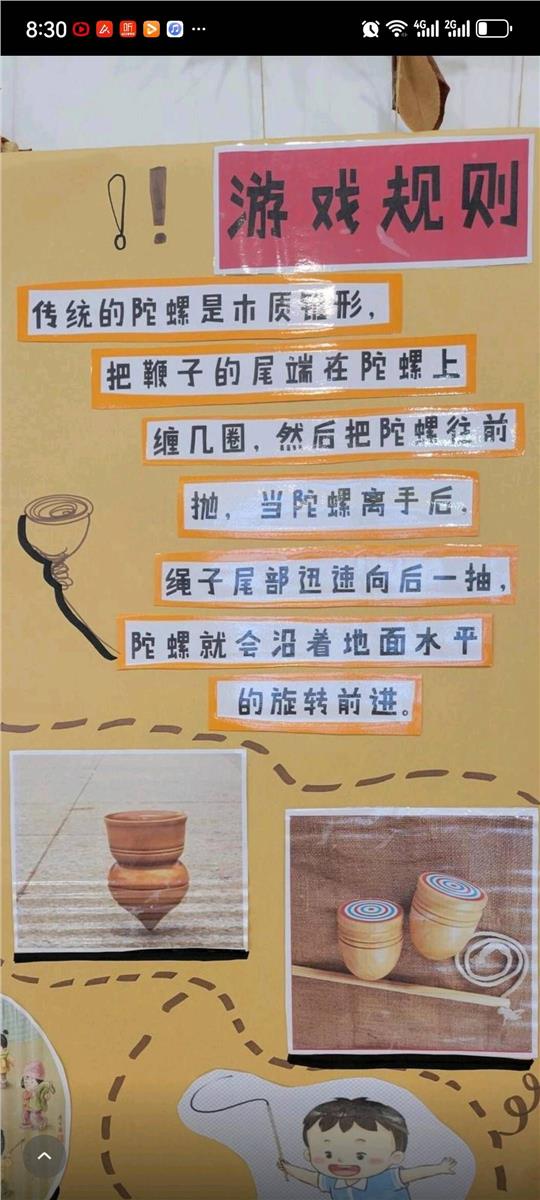 8:30
4G
2G
游戏规则
传统的陀螺是木质锥形，
把鞭子的尾端在陀螺上
缠几圈，然后把陀螺往前
抛，当陀螺离手后。
绳子尾部迅速向后一抽，
陀螺就会沿着地面水平
的旋转前进。